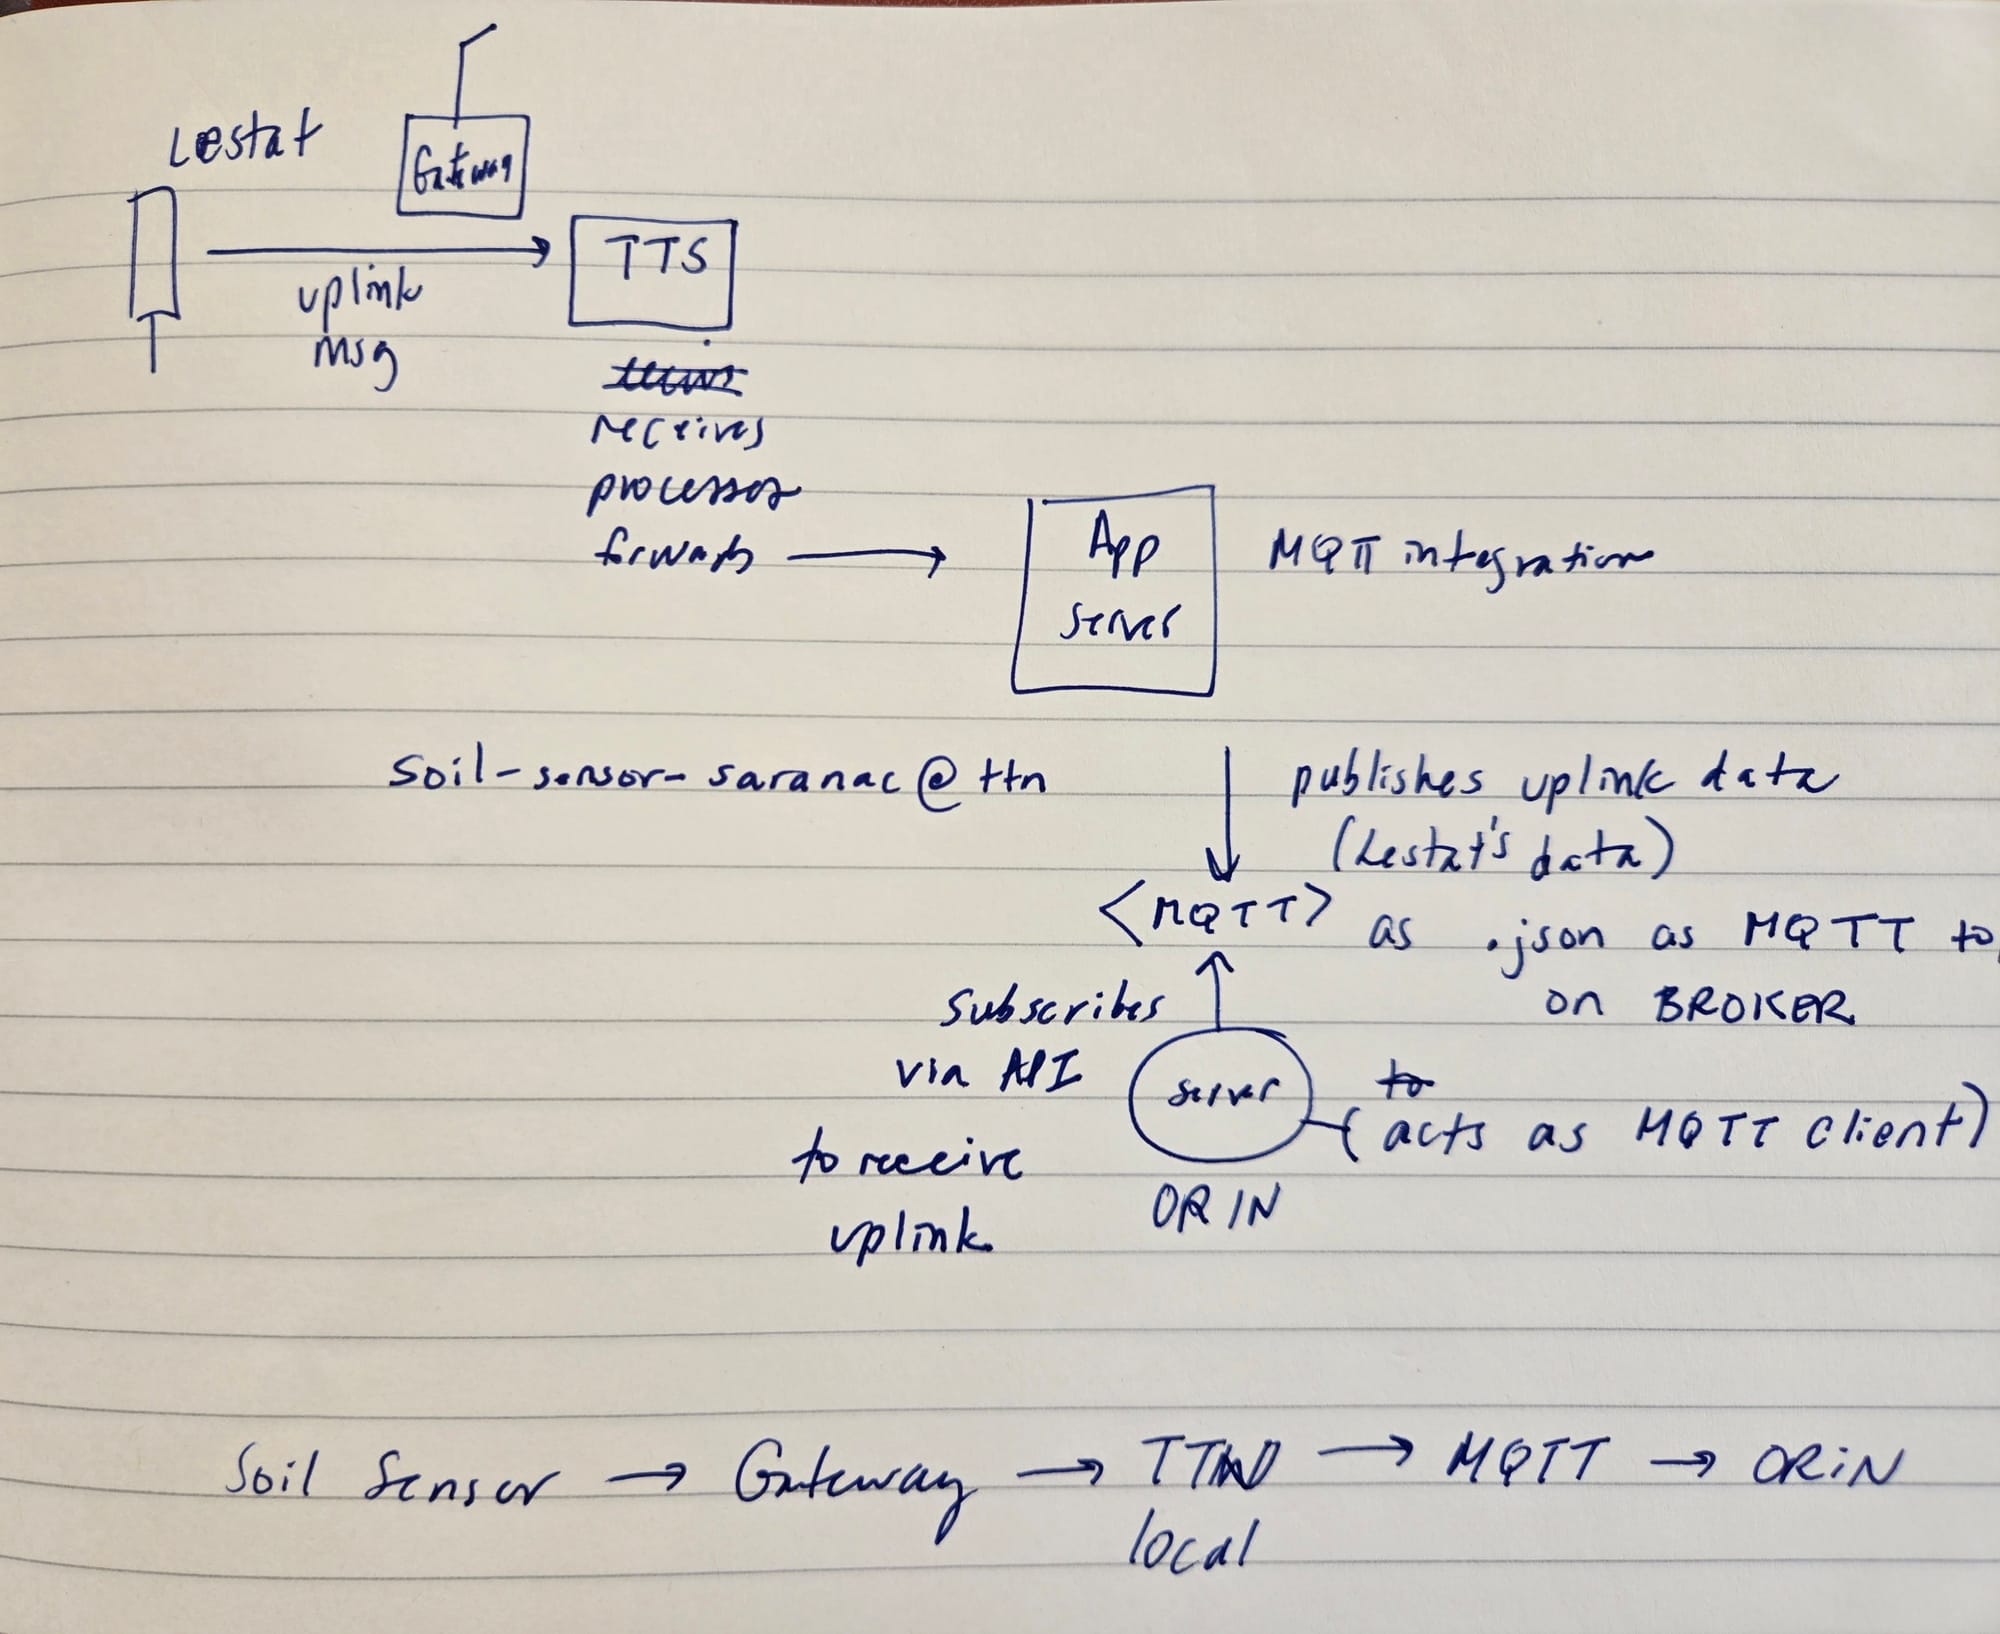 Lestat
Gateway
TTS
uplink
msg
receives
processes
forwards
App
server
MQTT integration
soil-sensor-saranac@ttn
publishes uplink data
(Lestat's data)
<MQTT>
as .json as MQTT to
on BROKER
subscribes
via API
to receive
uplink
server
to
(acts as MQTT client)
ORIN
Soil Sensor → Gateway → TTN → MQTT → ORiN
local